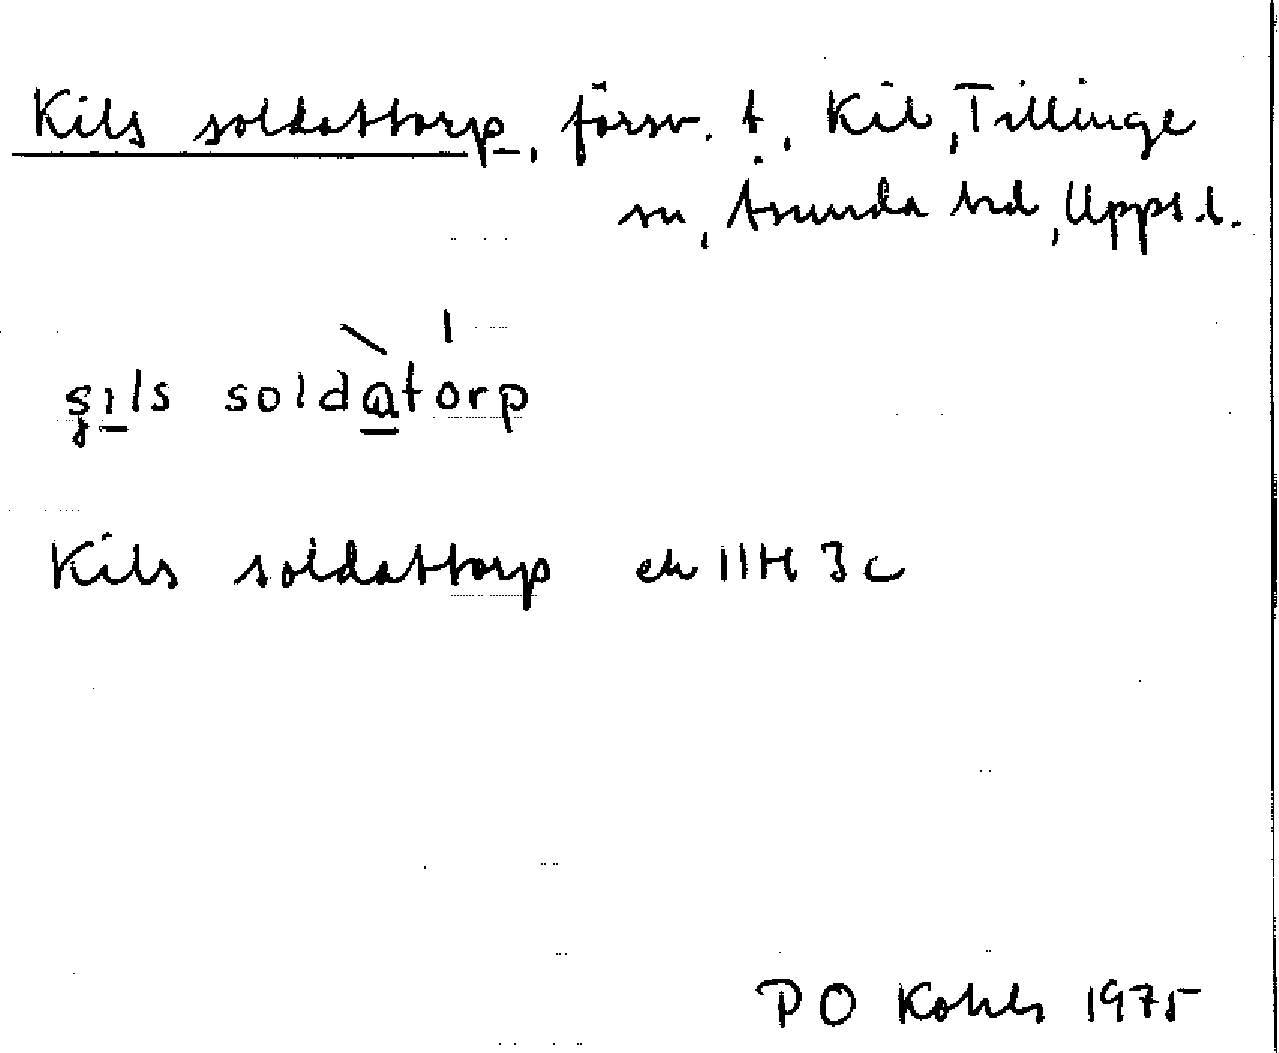 Kils soldattorp, försv. t, Kil, Tillinge
sn, Åsunda hd, Upps. l.
s̡i̲ls solda̲torp
Kils soldattorp ek 11H 3c
P O Kohls 1975